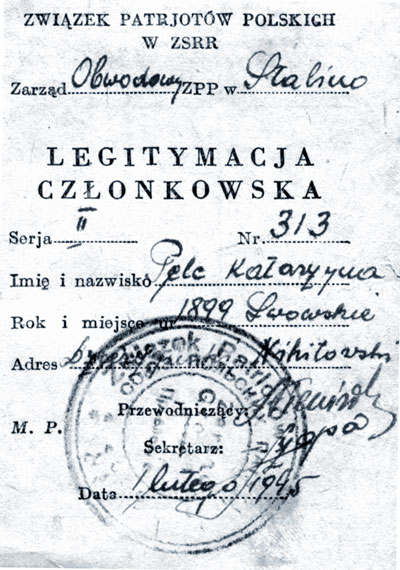 ZWIĄZEK PATRJOTÓW POLSKICH
W ZSRR
Zarząd Obwodowy ZPP w Stalino
LEGITYMACJA
CZŁONKOWSKA
Serja II Nr. 313
Imię i nazwisko Pelc Katarzyna
Rok i miejsce ur. 1899 Lwowskie
Adres Nikitowski
Przewodniczący:
M. P.
Sekretarz:
Data 1 lutego 1945